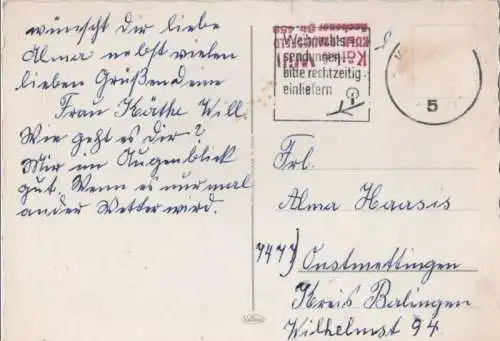 wünscht Dir liebe
Alma nebst vielen
lieben Grüßen Deine
Frau Käthe Will.
Wie geht es dir?
Mir im Augenblick
gut. Wenn es nur mal
ander Wetter wird.
Weihnachts-
sendungen
bitte rechtzeitig
einliefern
Käthe Will
Aachener Str. 458
5
Frl.
Alma Haasis
7477) Onstmettingen
Kreis Balingen
Wilhelmst 94.